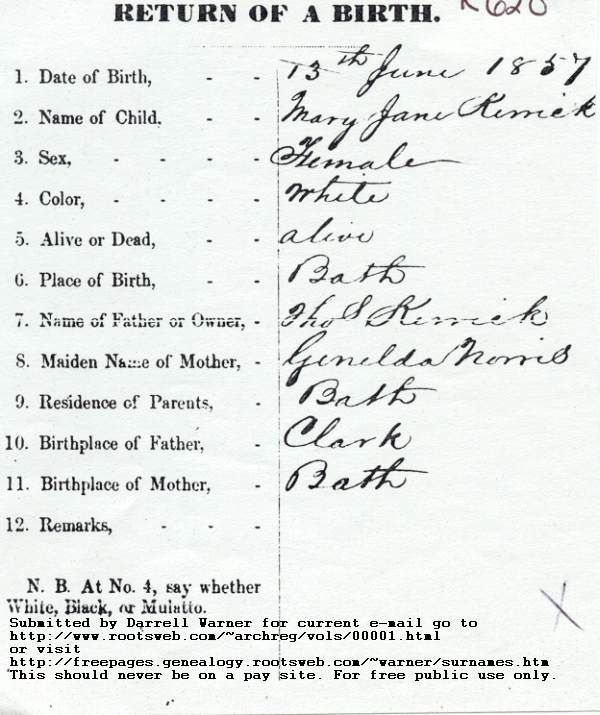 RETURN OF A BIRTH. K620
1. Date of Birth, - - 13th June 1857
2. Name of Child, - - Mary Jane Kerrick
3. Sex, - - - - Female
4. Color, - - - - White
5. Alive or Dead, - - alive
6. Place of Birth, - - Bath
7. Name of Father or Owner, - Thos Kerrick
8. Maiden Name of Mother, - Genelda Norris
9. Residence of Parents, - Bath
10. Birthplace of Father, - Clark
11. Birthplace of Mother, - Bath
12. Remarks, - - -
N. B. At No. 4, say whether
White, Black, or Mulatto.
X
Submitted by Darrell Warner for current e-mail go to
http://www.rootsweb.com/~archreg/vols/00001.html
or visit
http://freepages.genealogy.rootsweb.com/~warner/surnames.htm
This should never be on a pay site. For free public use only.